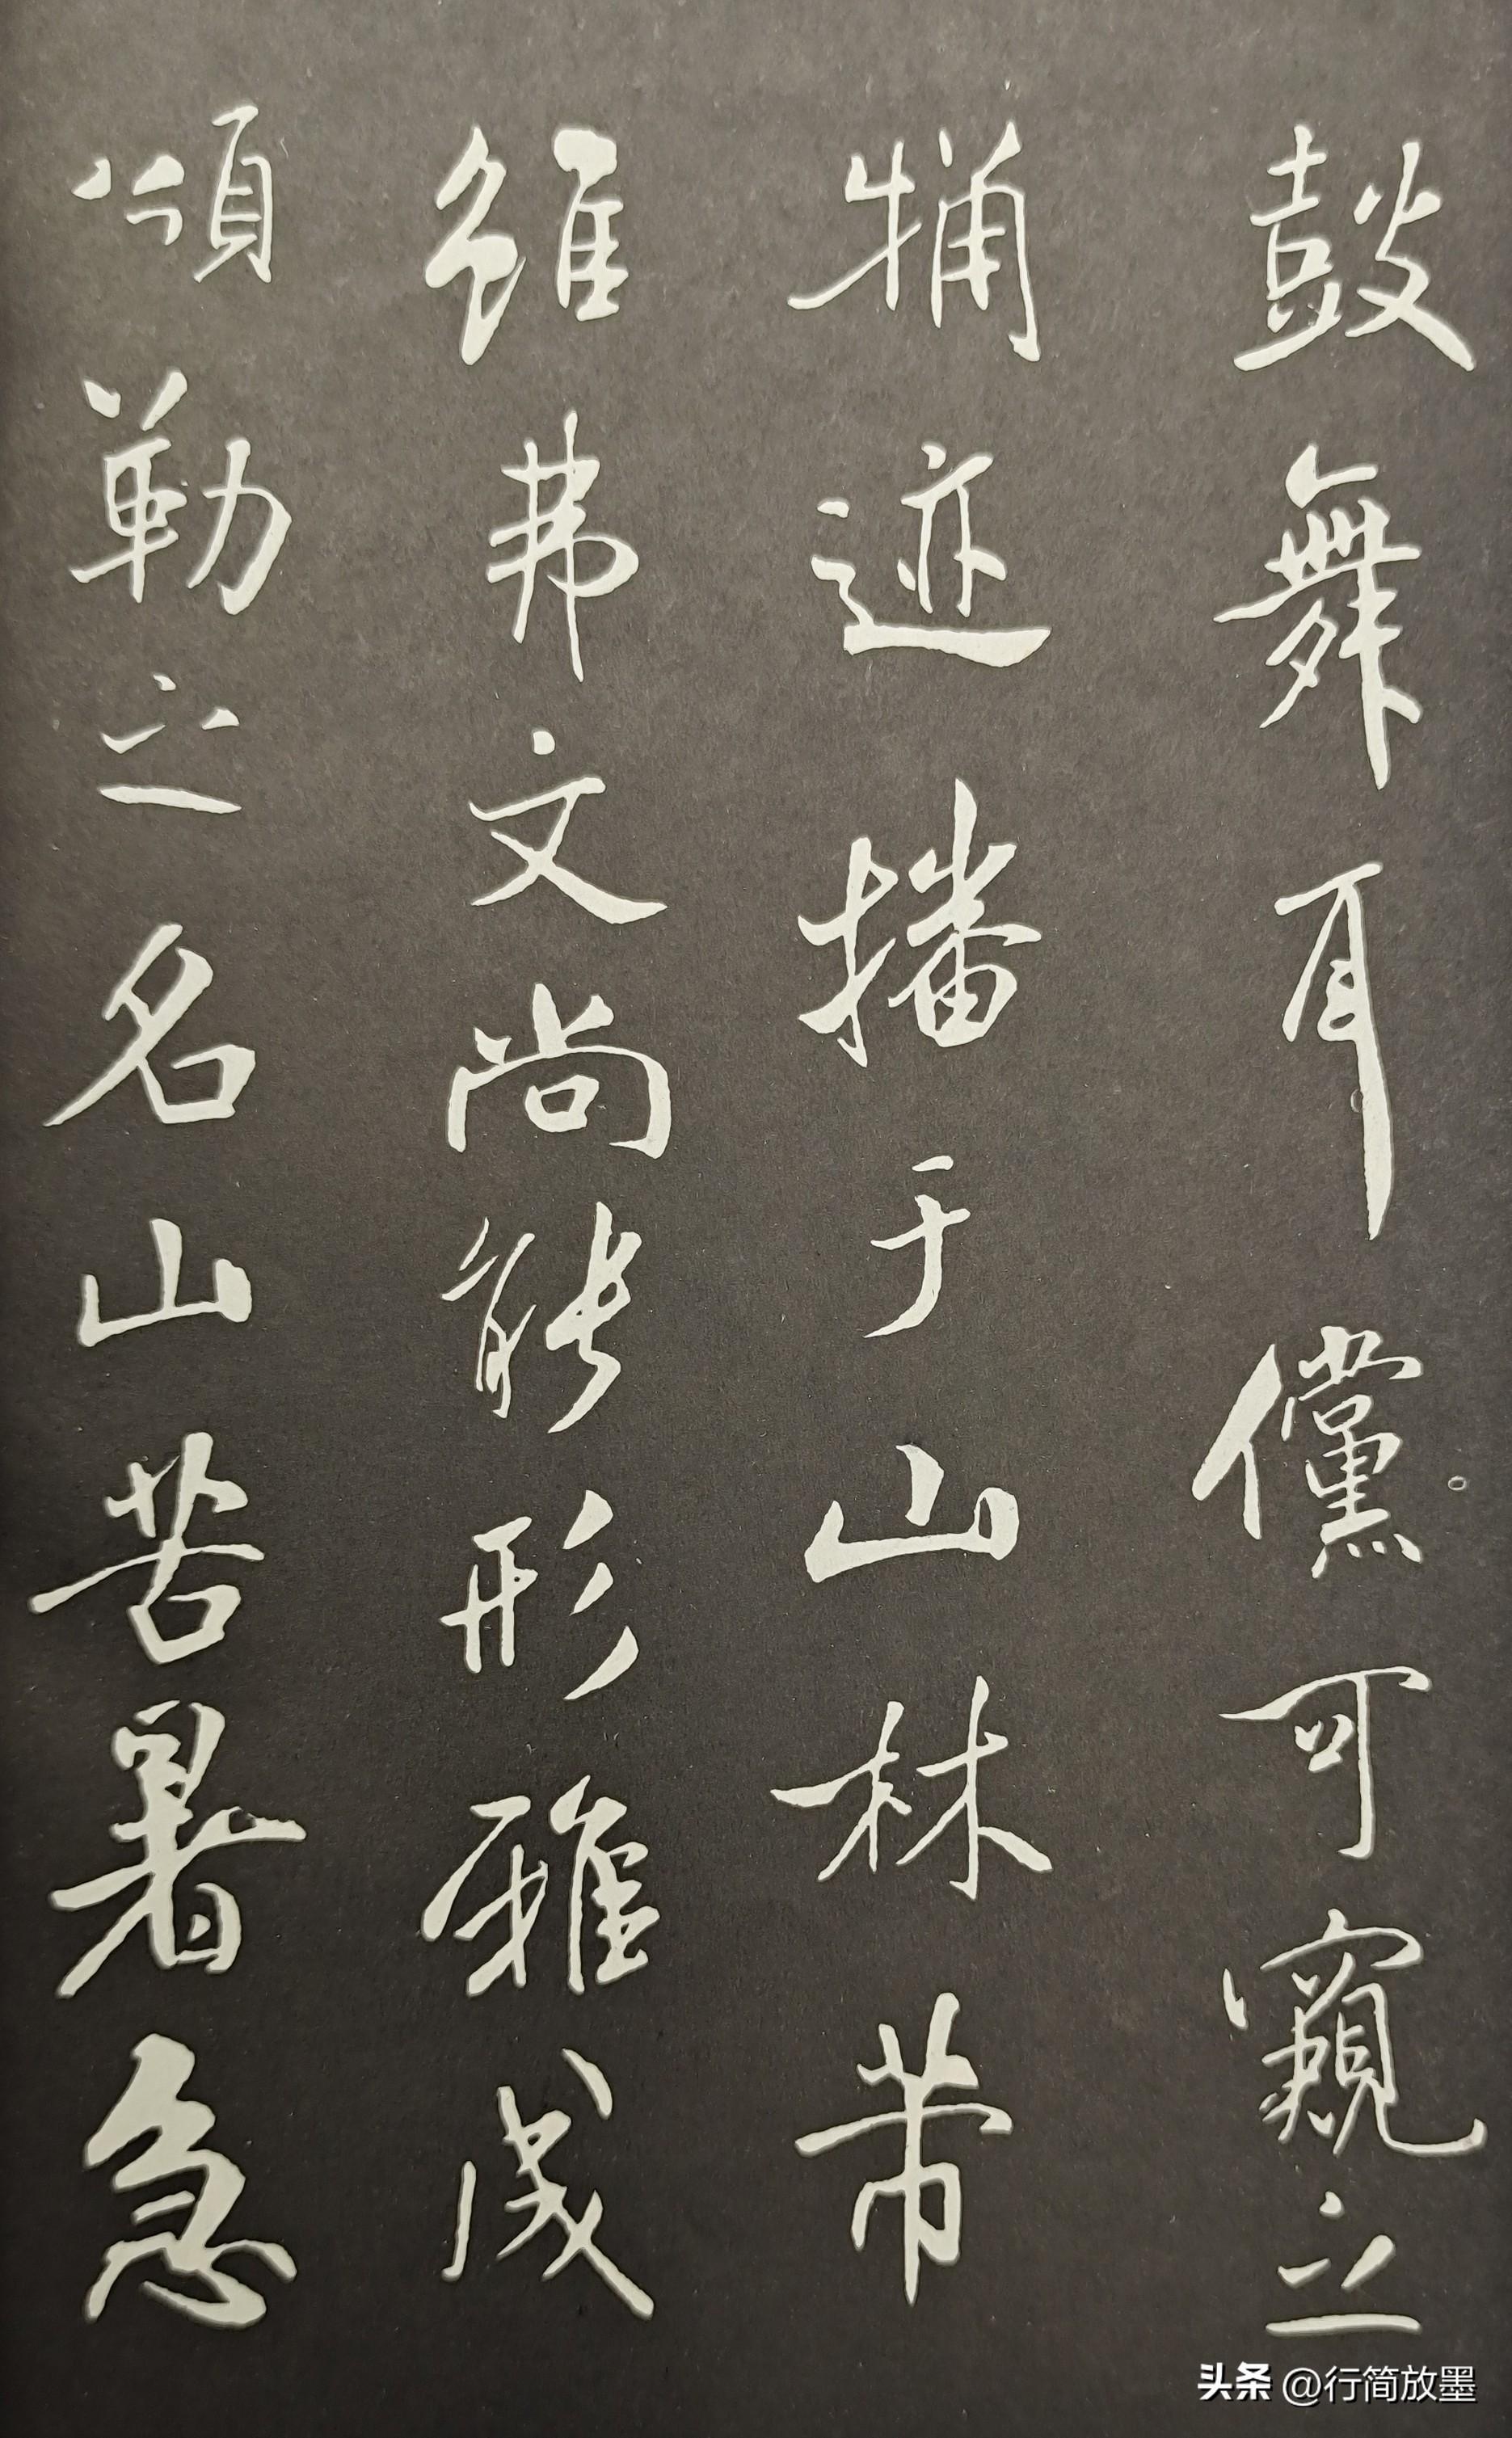 鼓舞耳儻可窺之
捕迹播于山林带
雖弗文尚能形雅成
頌勒之名山苦暑急
头条 @行简放墨